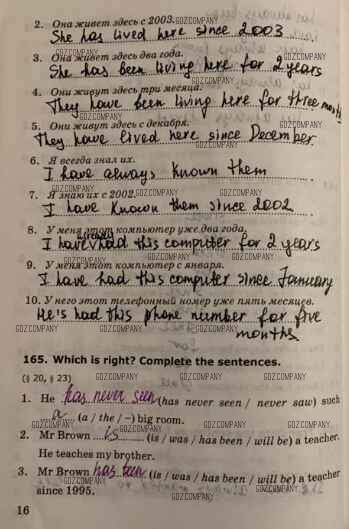 2. Она живет здесь с 2003.
She has lived here since 2003
3. Она живет здесь два года.
She has been living here for 2 years
4. Они живут здесь три месяца.
They have been living here for three months
5. Они живут здесь с декабря.
They have lived here since December
6. Я всегда знал их.
I have always known them
7. Я знаю их с 2002.
I have known them since 2002
8. У меня этот компьютер уже два года.
already
I have had this computer for 2 years
9. У меня этот компьютер с января.
I have had this computer since January
10. У него этот телефонный номер уже пять месяцев.
He's had this phone number for five
months
165. Which is right? Complete the sentences.
(§ 20, § 23)
1. He has never seen (has never seen / never saw) such
a (a / the / –) big room.
2. Mr Brown is (is / was / has been / will be) a teacher.
He teaches my brother.
3. Mr Brown has been (is / was / has been / will be) a teacher
since 1995.
16
GDZCOMPANY